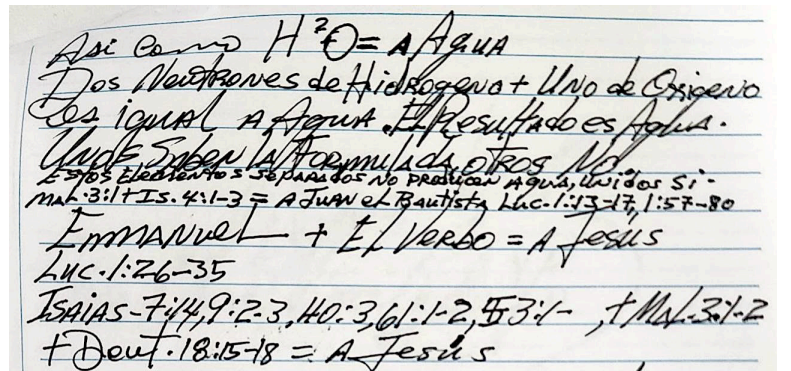 Asi como H²O = A Agua
Dos Neutrones de Hidrogeno + Uno de Oxigeno
es igual A Agua. El Resultado es Agua.
Unos Saben la Formulada, otros No.
Estos Elementos separados no producen agua, unidos si.-
Mal.3:1+Is.4:1-3 = A Juan el Bautista Luc.1:13-17, 1:57-80
Emmanuel + El Verbo = A Jesús
Luc.1:26-35
Isaias-7:14, 9:2-3, 40:3, 61:1-2, 53:1- , + Mal.3:1-2
+ Deut.18:15-18 = A Jesús